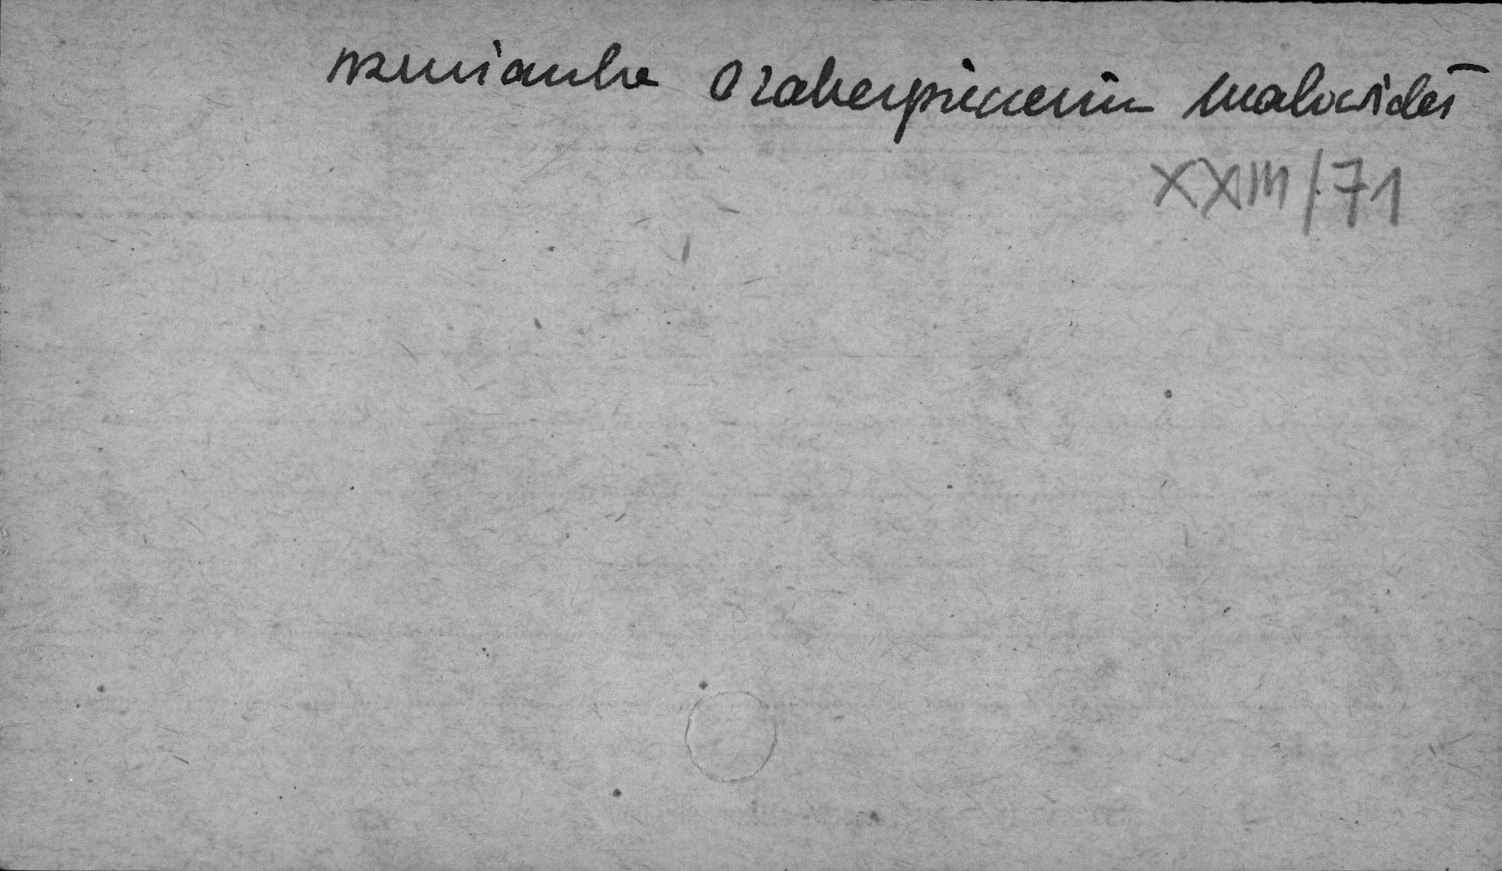 wzmianka o zabezpieczeniu malowideł
XXIII/71